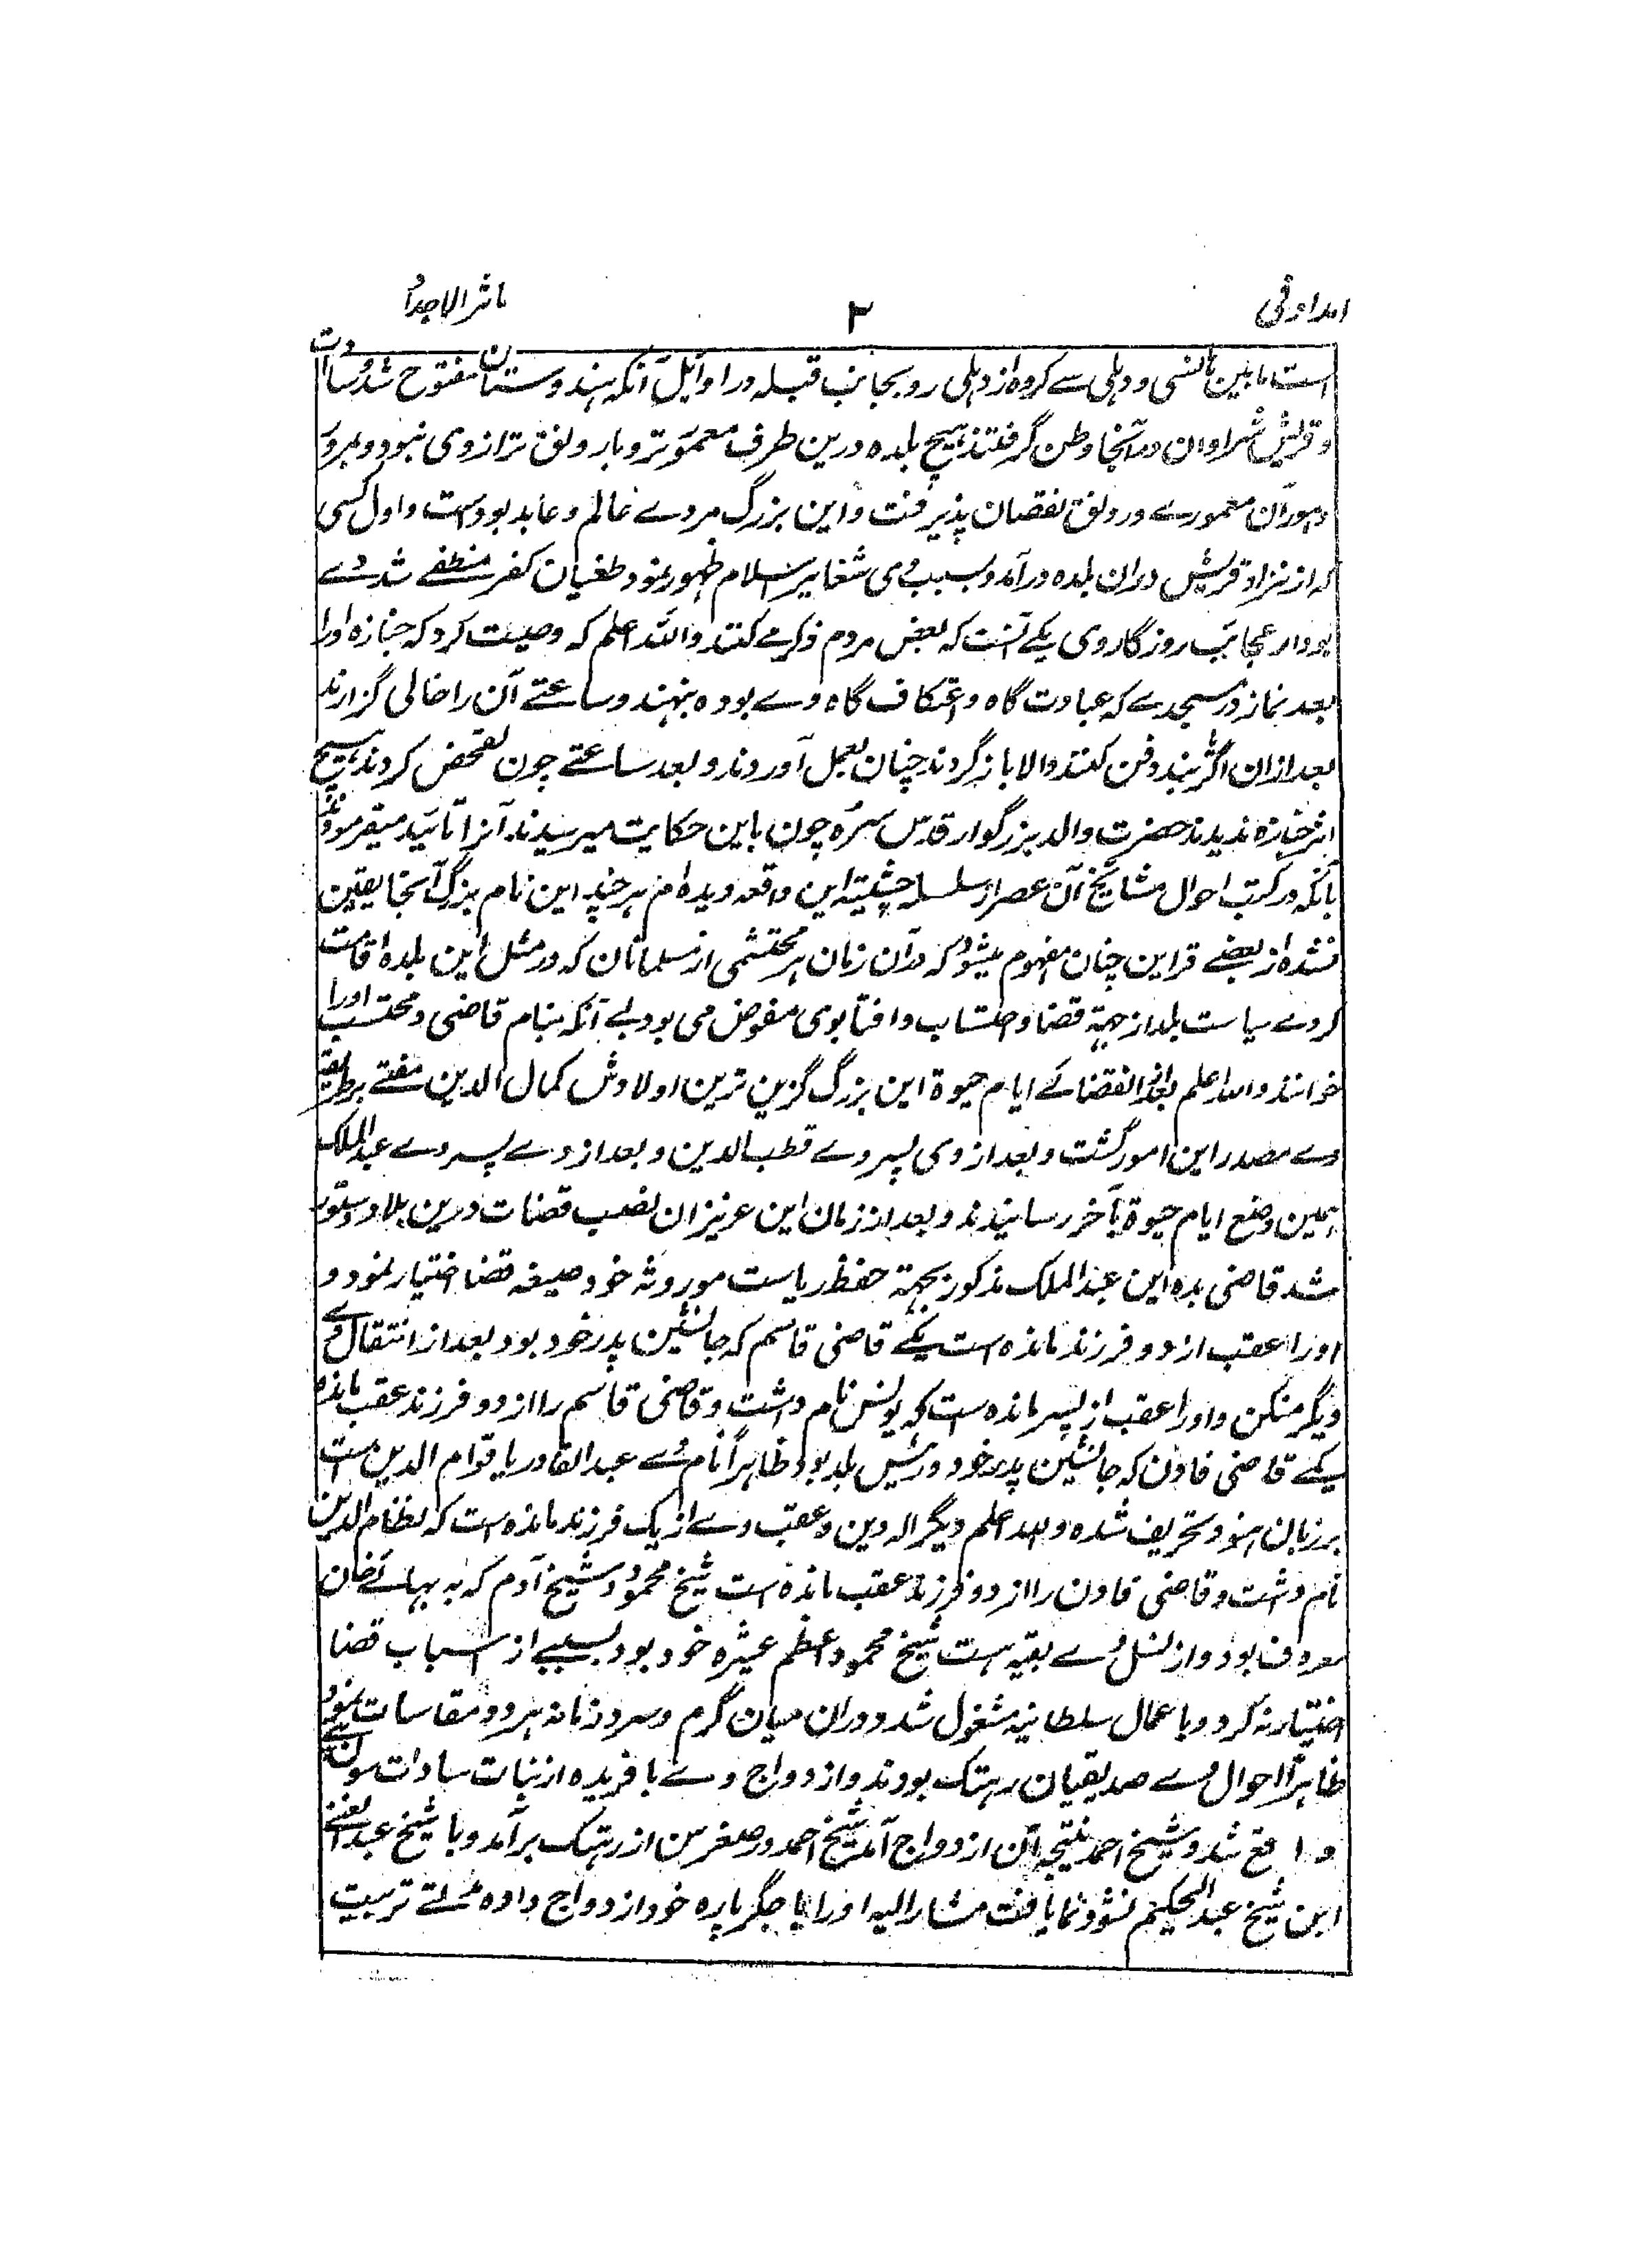 امداد فی ۲ مآثر الاجداد
است مابین هانسی و دهلی سے کروه از دهلی رو بجانب قبله در اوایل آنکه هندوستان مفتوح شد و سادات
و قریش فراوان در آنجا وطن گرفتند هیچ بلده درین طرف معمورتر و بارونق تر ازوی نبود و بمرور
دهور آن معموری و رونق نقصان پذیرفت و این بزرگ مردے عالم و عابد بوده است و اول کسی
که از نژاد قریش دران بلده درآمد و بسبب وی شعایر اسلام ظهور نمود و طغیان کفر منطفے شد وے
بود از عجائب روزگار وی یکے آنست که بعض مردم ذکر مے کنند والله اعلم که وصیت کرد که جنازه او را
بعد نماز در مسجدے که عبادت گاه و اعتکاف گاه وے بوده بنهند و ساعتے آن را خالی گزارند
بعد ازان اگر بینند دفن کنند والا باز گردند چنان بعمل آوردند و بعد ساعتے چون تفحص کردند هیچ
اثر جنازه ندیدند حضرت والد بزرگوار قدس سره چون باین حکایت میرسیدند آنرا تائید میفرمودند
بآنکه در کتب احوال مشایخ آن عصر از سلسله چشتیه این واقعه دیده ام هر چند این نام بزرگ آنجا یقین
نشده از بعضے قراین چنان مفهوم میشود که در آن زمان هر محتشمی از مسلمانان که در مثل این بلده اقامت
کردے سیاست بلد از جهة قضا و احتساب و افتا بوی مفوض می بود بے آنکه بنام قاضی و محتسب او را
خوانند والله اعلم بعد از انقضاے ایام حیوة این بزرگ گزین ترین اولادش کمال الدین مفتے بر طریقه
وے مصدر این امور گشت و بعد از وی پسر وے قطب الدین و بعد از وے پسر وے عبد الملک
بهمین وضع ایام حیوة بآخر رسانیدند و بعد از زمان این عزیزان نصب قضات درین بلاد دستور
شد قاضی بده ابن عبد الملک مذکور بجهة حفظ ریاست موروثه خود صیغه قضا اختیار نمود و
او را عقب از دو فرزند مانده است یکے قاضی قاسم که جانشین پدر خود بود بعد از انتقال وے
دیگر منکن و او را عقب از پسر مانده است که یونس نام داشت و قاضی قاسم را از دو فرزند عقب مانده
یکے قاضی قاون که جانشین پدر خود و رئیس بلد بود ظاهراً نام وے عبد القادر یا قوام الدین است
بر زبان هنود تحریف شده والله اعلم دیگر اله دین و عقب وے از یک فرزند مانده است که نظام الدین
نام داشت و قاضی قاون را از دو فرزند عقب مانده است شیخ محمود و شیخ آدم که به بهائے خان
معروف بود و از نسل وے بقیه است شیخ محمود اعظم عشیره خود بود بسببے از اسباب قضا
اختیار نه کرد و با عمال سلطانیه مشغول شد و دران میان گرم و سرد زمانه هر دو مقاسات نمود
ظاهراً احوال وے صدیقیان رهتک بودند و ازدواج وے با فریده از بنات سادات سونی پت
واقع شد و شیخ احمد نتیجه آن ازدواج آمد شیخ احمد در صغر سن از رهتک برآمد و با شیخ عبد الغنی
ابن شیخ عبد الحکیم نشو و نما یافت مشار الیه او را با جگر پاره خود ازدواج داده مدتے تربیت